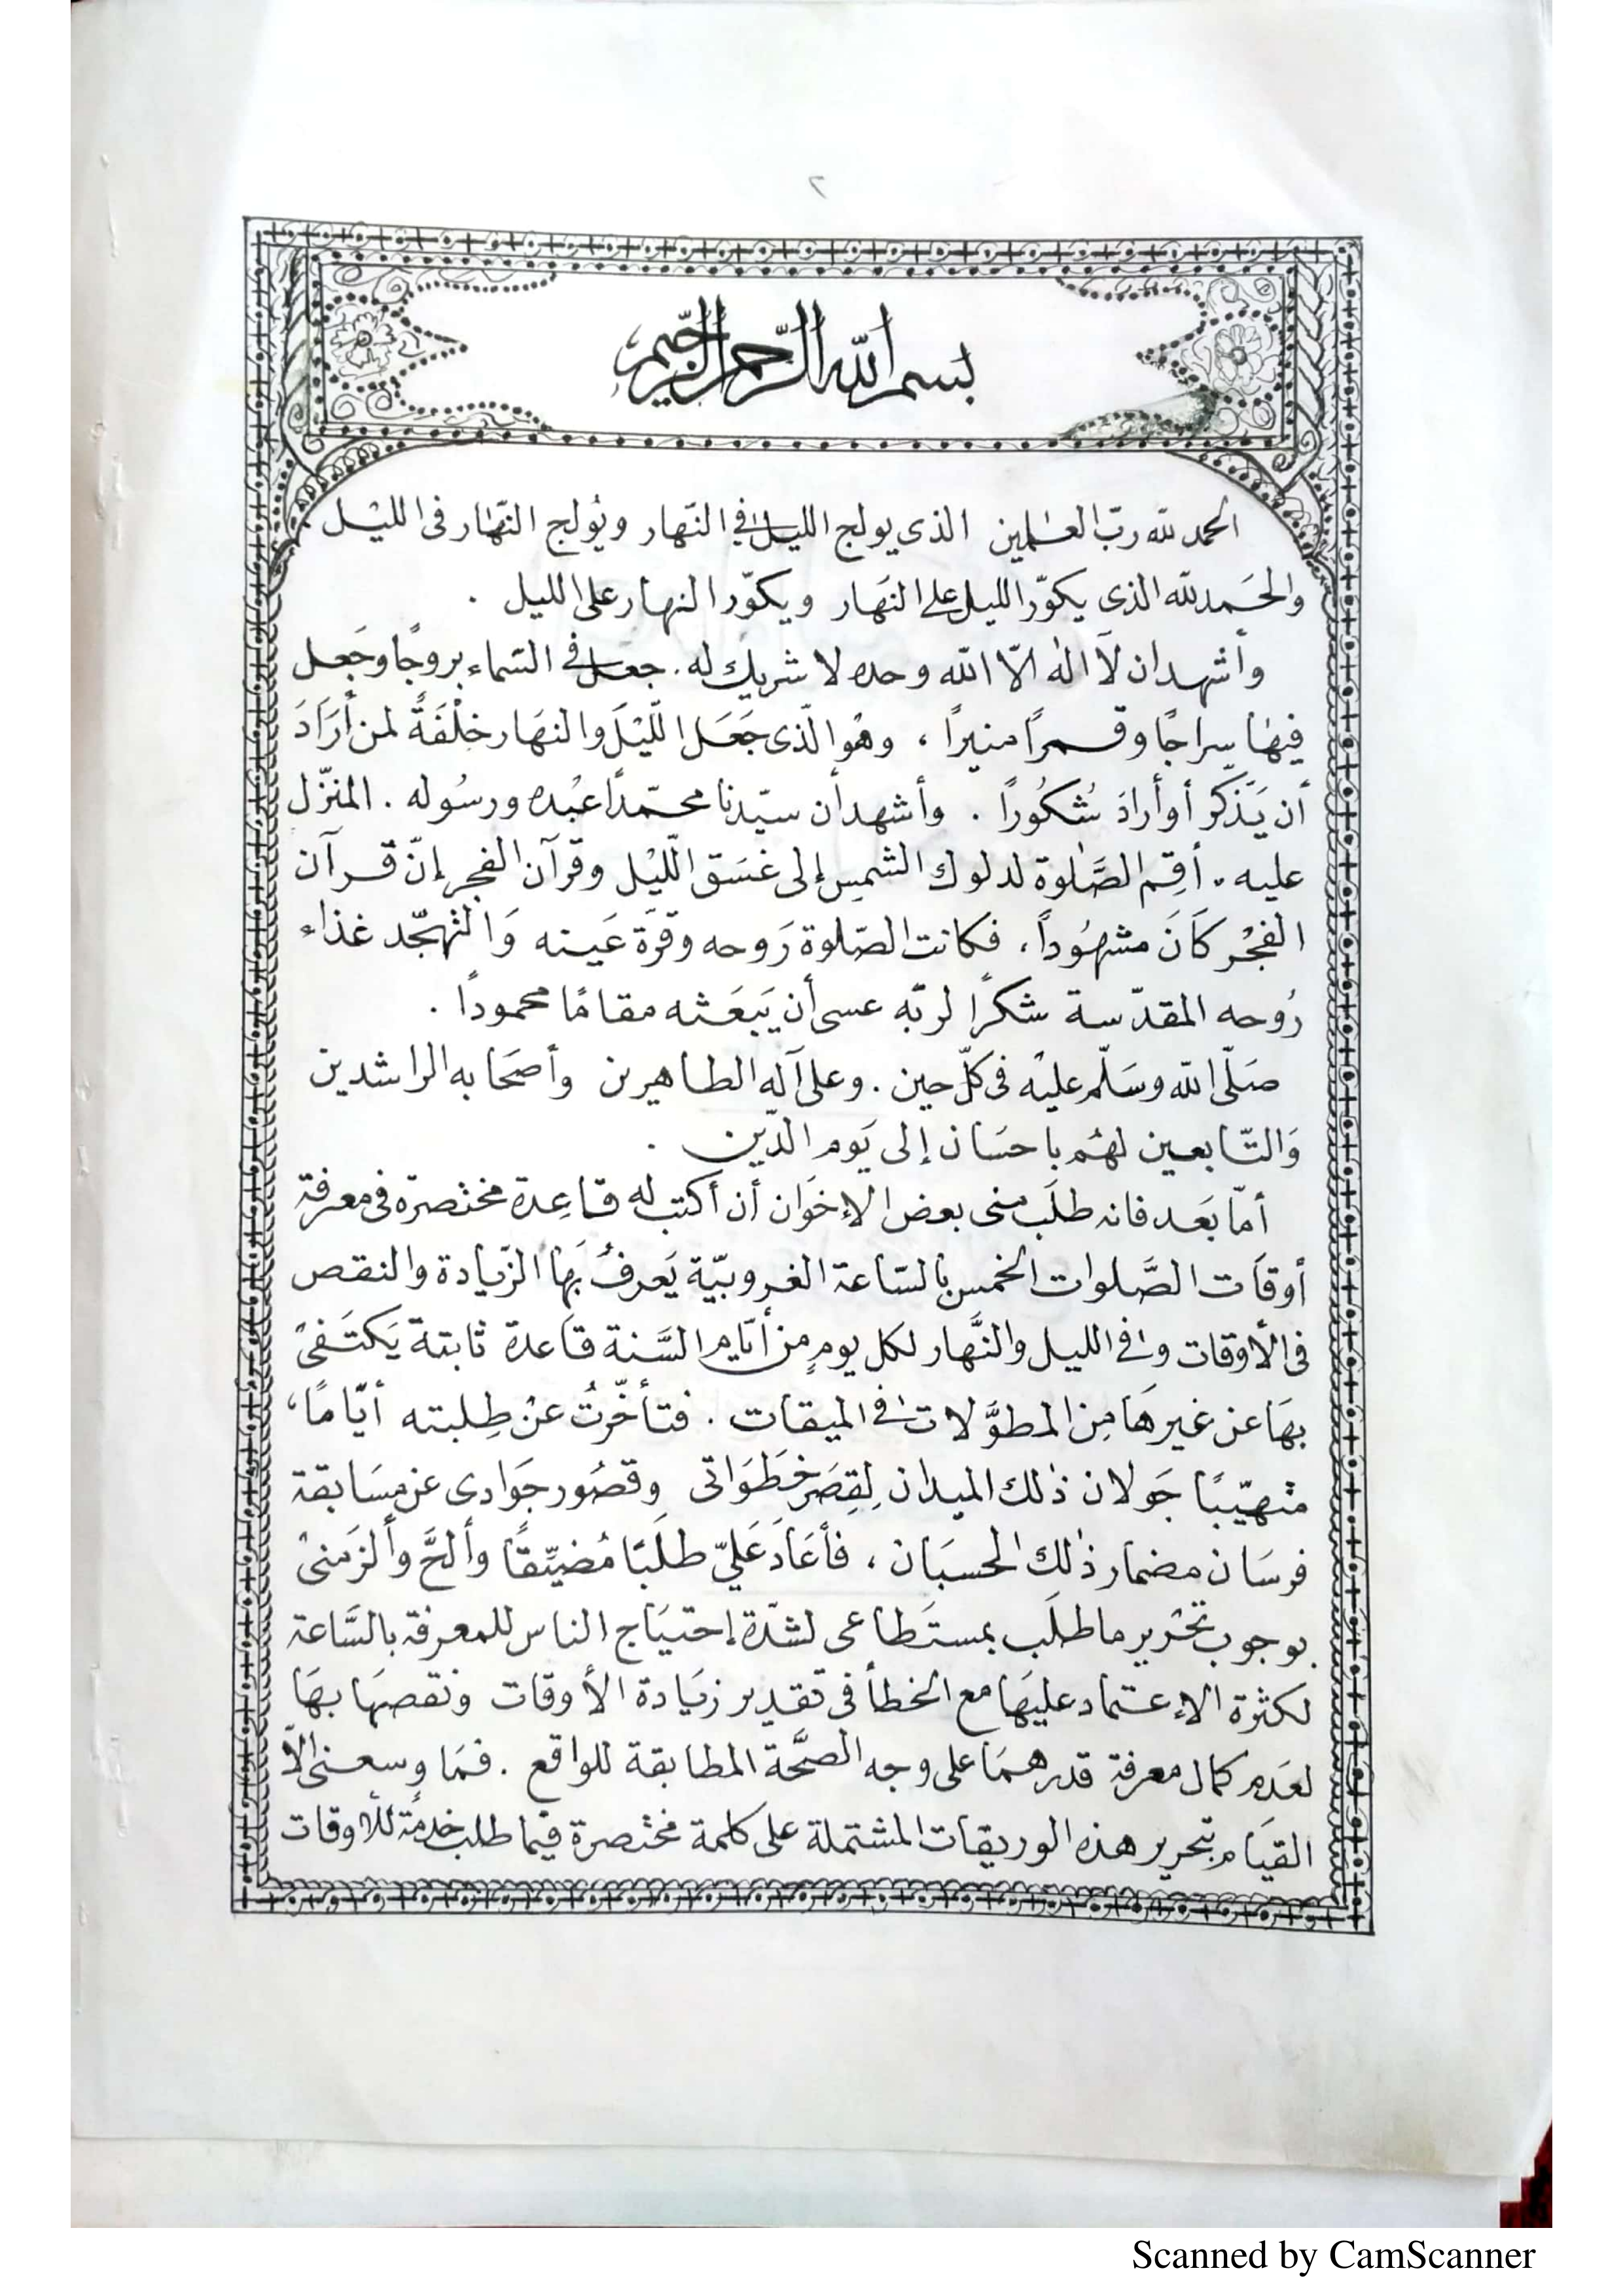 ٢
بسم الله الرحمن الرحيم
الحمد لله ربّ العٰلمين الذى يولج الليل فى النّهار ويُولج النّهار فى الليْل
والحَمد لله الذى يكوّر الليل على النهَار ويكوّر النهار على الليل .
وأشهد ان لَا الٰه الّا الله وحده لا شريك له . جعل فى السّماء بروجًا وجَعل
فيهَا سِراجًا وقمرًا منيرًا ، وهُو الّذى جَعَل اللّيْلَ والنهَار خلْفَةً لمن أرَادَ
أن يَذّكر أو أرادَ شُكُورًا . وأشهد أن سيّدنا محمّدًا عبْده ورسُوله . المنزّل
عليه . أقِم الصَّلوة لدلوك الشمس إلى غسَق الّليْل وقرآن الفجر إنّ قرآن
الفجْر كَانَ مشهُودًا ، فكانت الصّلوة رَوحه وقرّة عَينه وَالتهجّد غذاء
رُوحه المقدّسة شكرًا لربّه عسى أن يَبعَثه مقامًا محمودًا .
صَلّى الله وسَلّم عليْه فى كلّ حين . وعلى آله الطاهرين وأصحَابه الراشدين
وَالتّابعين لهُم باحسَان إلى يَوم الدّين .
أمّا بَعد فانه طلَب منى بعض الإخوَان أن أكتب له قاعِدة مختصرة فى معرفة
أوقَات الصَّلوات الخمس بالسّاعة الغروبيّة يَعرفُ بهَا الزّيادة والنقص
فى الأوقات وفى الليل والنَّهار لكل يومٍ من أيّام السَّنة قاعدة ثابتة يَكتَفىْ
بهَا عن غيرهَا مِن المطوَّلات فى الميقات . فتأخّرتُ عنْ طِلبته أيّامًا ،
متهيّبًا جَولان ذٰلك الميدان لِقِصَر خَطَوَاتى وقصُور جَوادى عن مسَابقة
فرسَان مضمار ذٰلك الحسبَان ، فأعَادَ عَليّ طلَبًا مُضيِّقًا وألحَّ وألزَمنىْ
بوجوب تحْرير ما طلَب بمستَطاعى لشدّة إحتيَاج الناس للمعرفة بالسَّاعة
لكثرة الإعتماد عليهَا مع الخطأ فى تقدير زيَادة الأوقات ونقصهَا بهَا
لعَدم كمال معرفة قدرهمَا على وجه الصحَّة المطابقة للواقع . فمَا وسعنى الّا
القيَام بتحرير هذه الوريقات المشتملة على كلمة مختصرة فيما طلب خدمةً للأوقات
Scanned by CamScanner